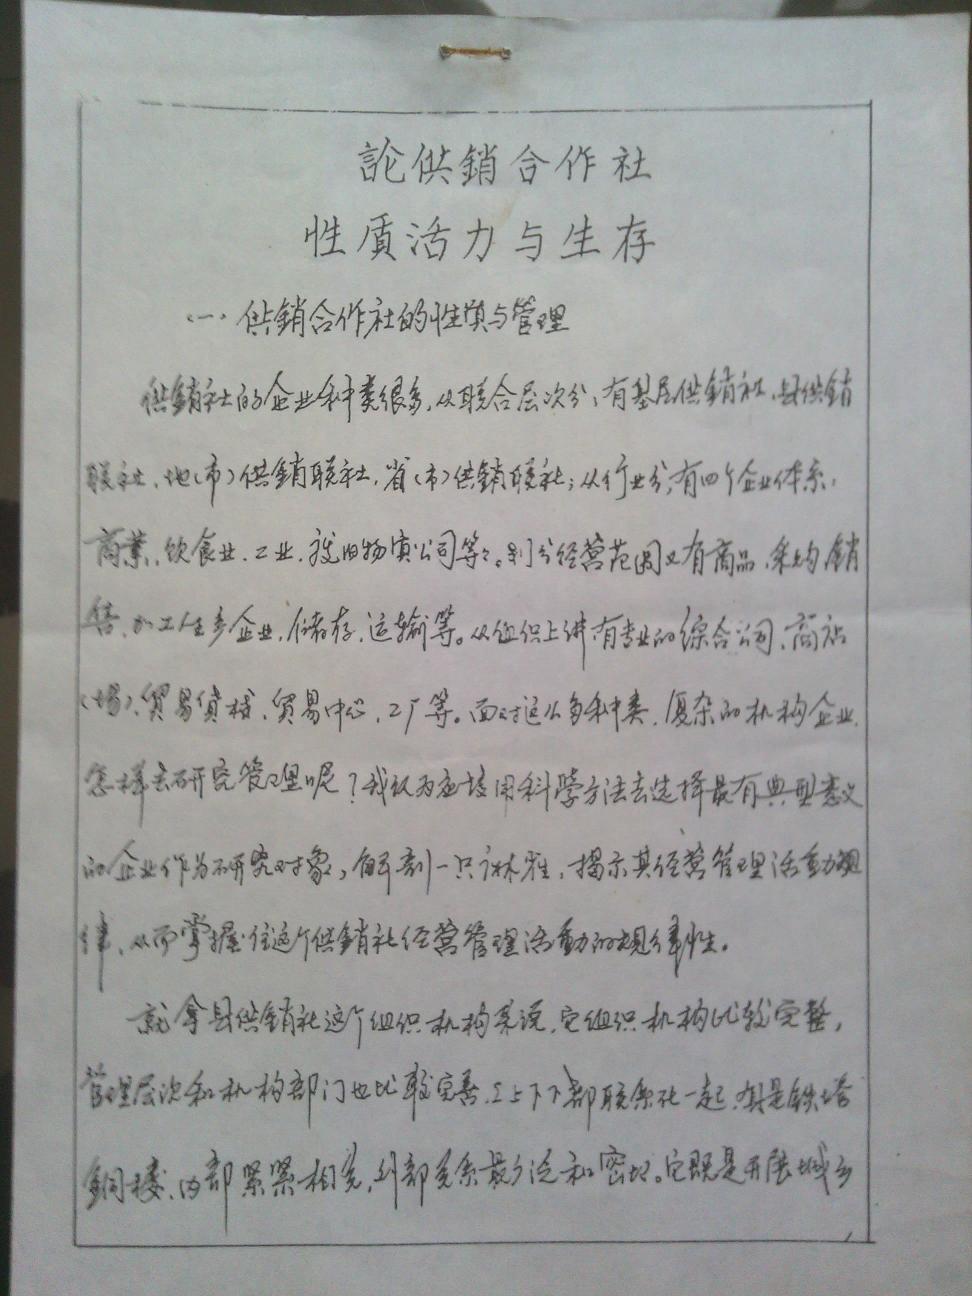 論供銷合作社
性质活力与生存
(一)供銷合作社的性质与管理
供銷社的企业种类很多,从联合层次分,有基层供銷社,县供銷
联社、地(市)供銷联社,省(市)供銷联社;从行业分,有四个企业体系,
商業、饮食业、工业、废旧物资公司等等。划分经营范围又有商品、采购、銷
售、加工生产企业,储存、运输等。从组织上讲有专业的综合公司、商站
(場)、贸易货栈、贸易中心、工厂等。面对这么多种类、复杂的机构企业,
怎样去研究管理呢?我认为应该用科學方法去选择最有典型意义
的企业作为研究对象,解剖一只麻雀,揭示其经营管理活動规
律、从而掌握住这个供銷社经营管理活動的规律性。
就拿县供銷社这个组织机构来说,它组织机构比较完整,
管理层次和机构部门也比较完善,上上下下都联系在一起,真是铁塔
銅楼、内部紧紧相关,外部关系最广泛和密切。它既是开展城乡